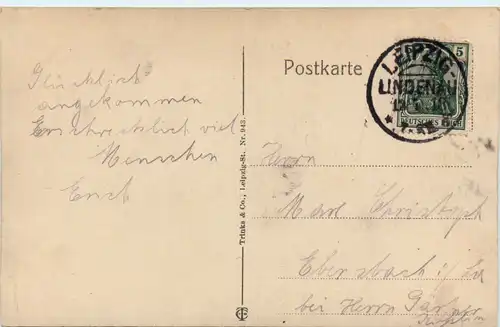 Glücklich
angekommen
Erschrecklich viel
Menschen
Erich
Trinks & Co., Leipzig-St. Nr. 943.
Postkarte
LEIPZIG-
LINDENAU
5
DEUTSCHES REICH
Herrn
Christoph
Ebersbach i/Sa
bei Herrn